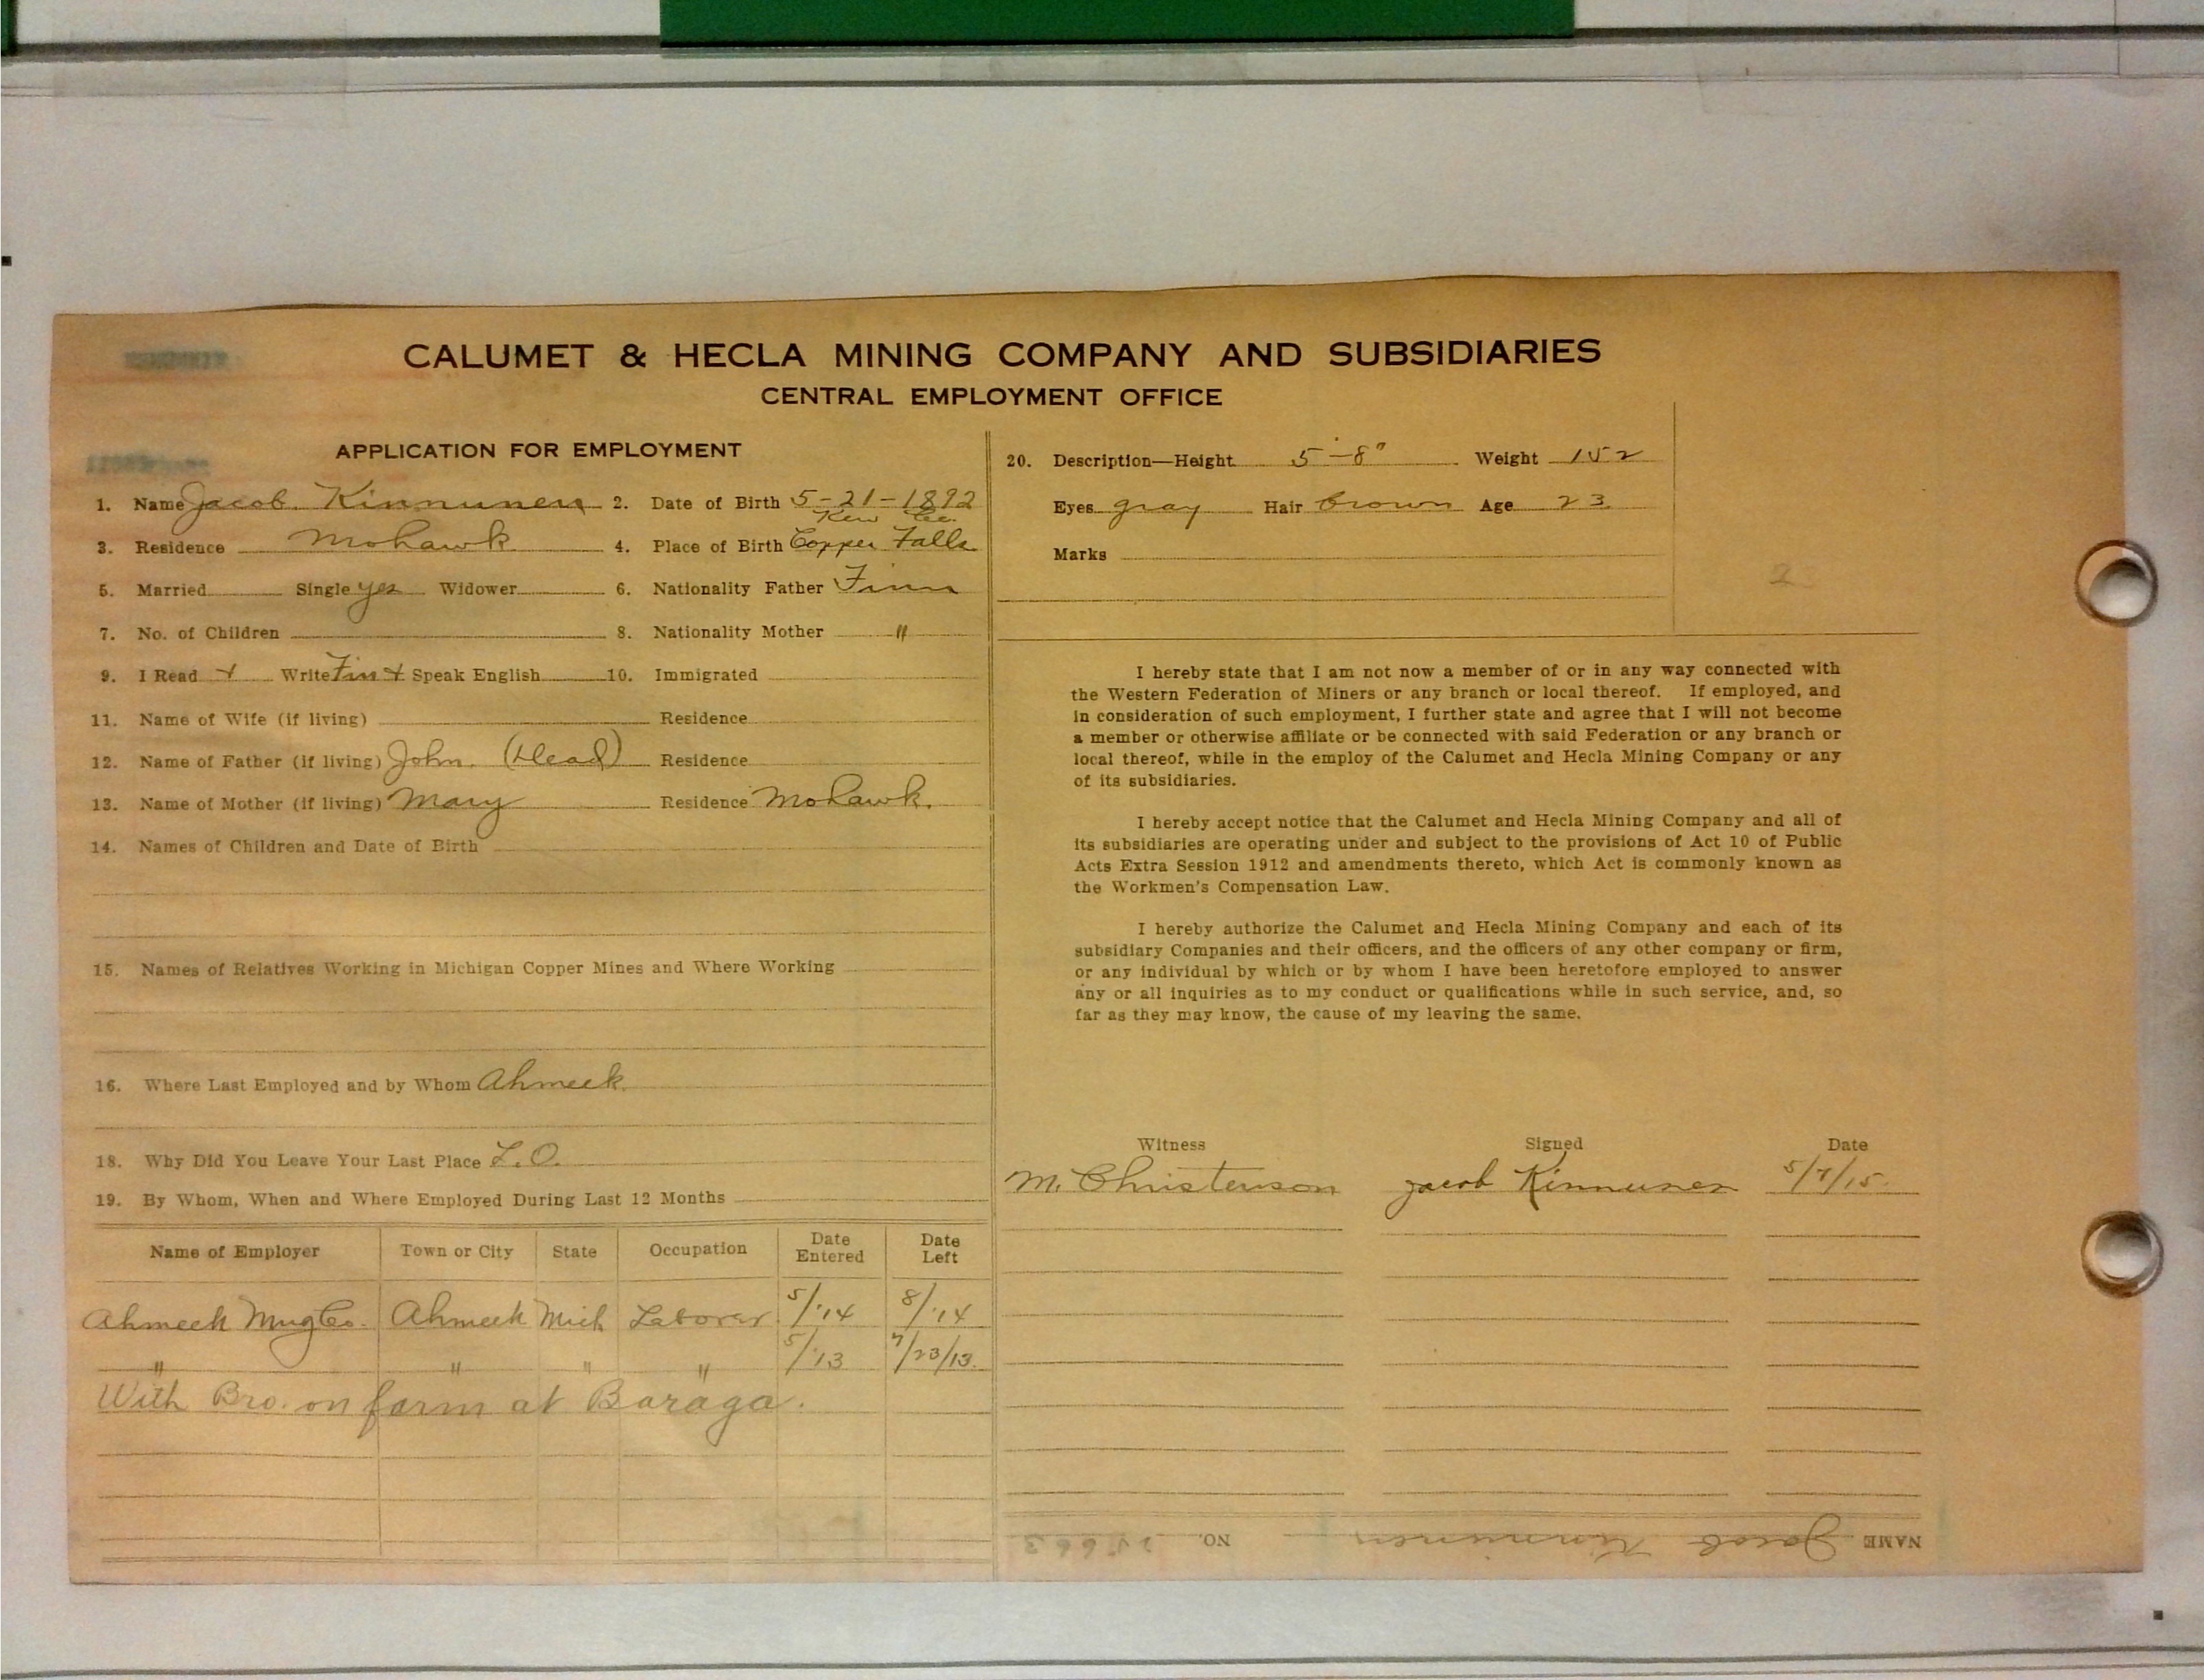 CALUMET & HECLA MINING COMPANY AND SUBSIDIARIES
CENTRAL EMPLOYMENT OFFICE
APPLICATION FOR EMPLOYMENT
1. Name Jacob Kinnunen 2. Date of Birth 5-21-1892
Kew Co.
3. Residence Mohawk 4. Place of Birth Copper Falls
5. Married Single yes Widower 6. Nationality Father Finn
7. No. of Children 8. Nationality Mother "
9. I Read + Write Fin + Speak English 10. Immigrated
11. Name of Wife (if living) Residence
12. Name of Father (if living) John. (Dead) Residence
13. Name of Mother (if living) Mary Residence Mohawk.
14. Names of Children and Date of Birth
15. Names of Relatives Working in Michigan Copper Mines and Where Working
16. Where Last Employed and by Whom Ahmeek
18. Why Did You Leave Your Last Place L.O.
19. By Whom, When and Where Employed During Last 12 Months
Name of Employer Town or City State Occupation Date Entered Date Left
Ahmeek Mng Co. Ahmeek Mich Laborer 5/'14 8/'14
" " " " 5/'13 7/23/13.
With Bro. on farm at Baraga.
20. Description—Height 5'-8" Weight 152
Eyes gray Hair brown Age 23
Marks
I hereby state that I am not now a member of or in any way connected with
the Western Federation of Miners or any branch or local thereof. If employed, and
in consideration of such employment, I further state and agree that I will not become
a member or otherwise affiliate or be connected with said Federation or any branch or
local thereof, while in the employ of the Calumet and Hecla Mining Company or any
of its subsidiaries.
I hereby accept notice that the Calumet and Hecla Mining Company and all of
its subsidiaries are operating under and subject to the provisions of Act 10 of Public
Acts Extra Session 1912 and amendments thereto, which Act is commonly known as
the Workmen's Compensation Law.
I hereby authorize the Calumet and Hecla Mining Company and each of its
subsidiary Companies and their officers, and the officers of any other company or firm,
or any individual by which or by whom I have been heretofore employed to answer
any or all inquiries as to my conduct or qualifications while in such service, and, so
far as they may know, the cause of my leaving the same.
Witness Signed Date
M. Christenson Jacob Kinnunen 5/7/15.
NAME Jacob Kinnunen NO.